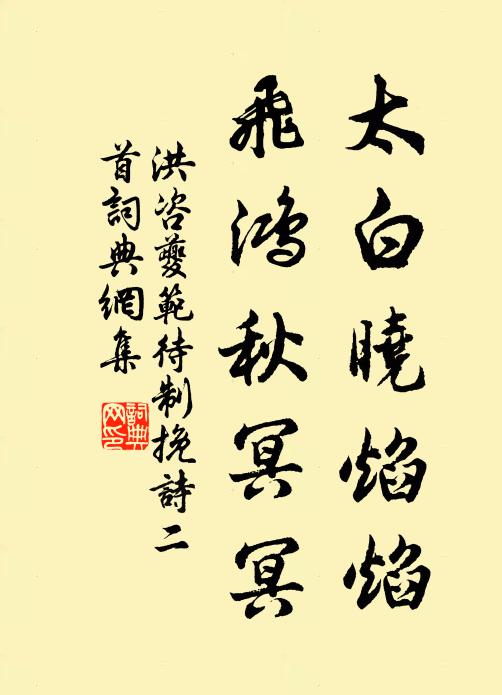 太白曉焰焰
飛鴻秋冥冥
洪咨夔範待制挽詩二
首詞典網集
詞典网印